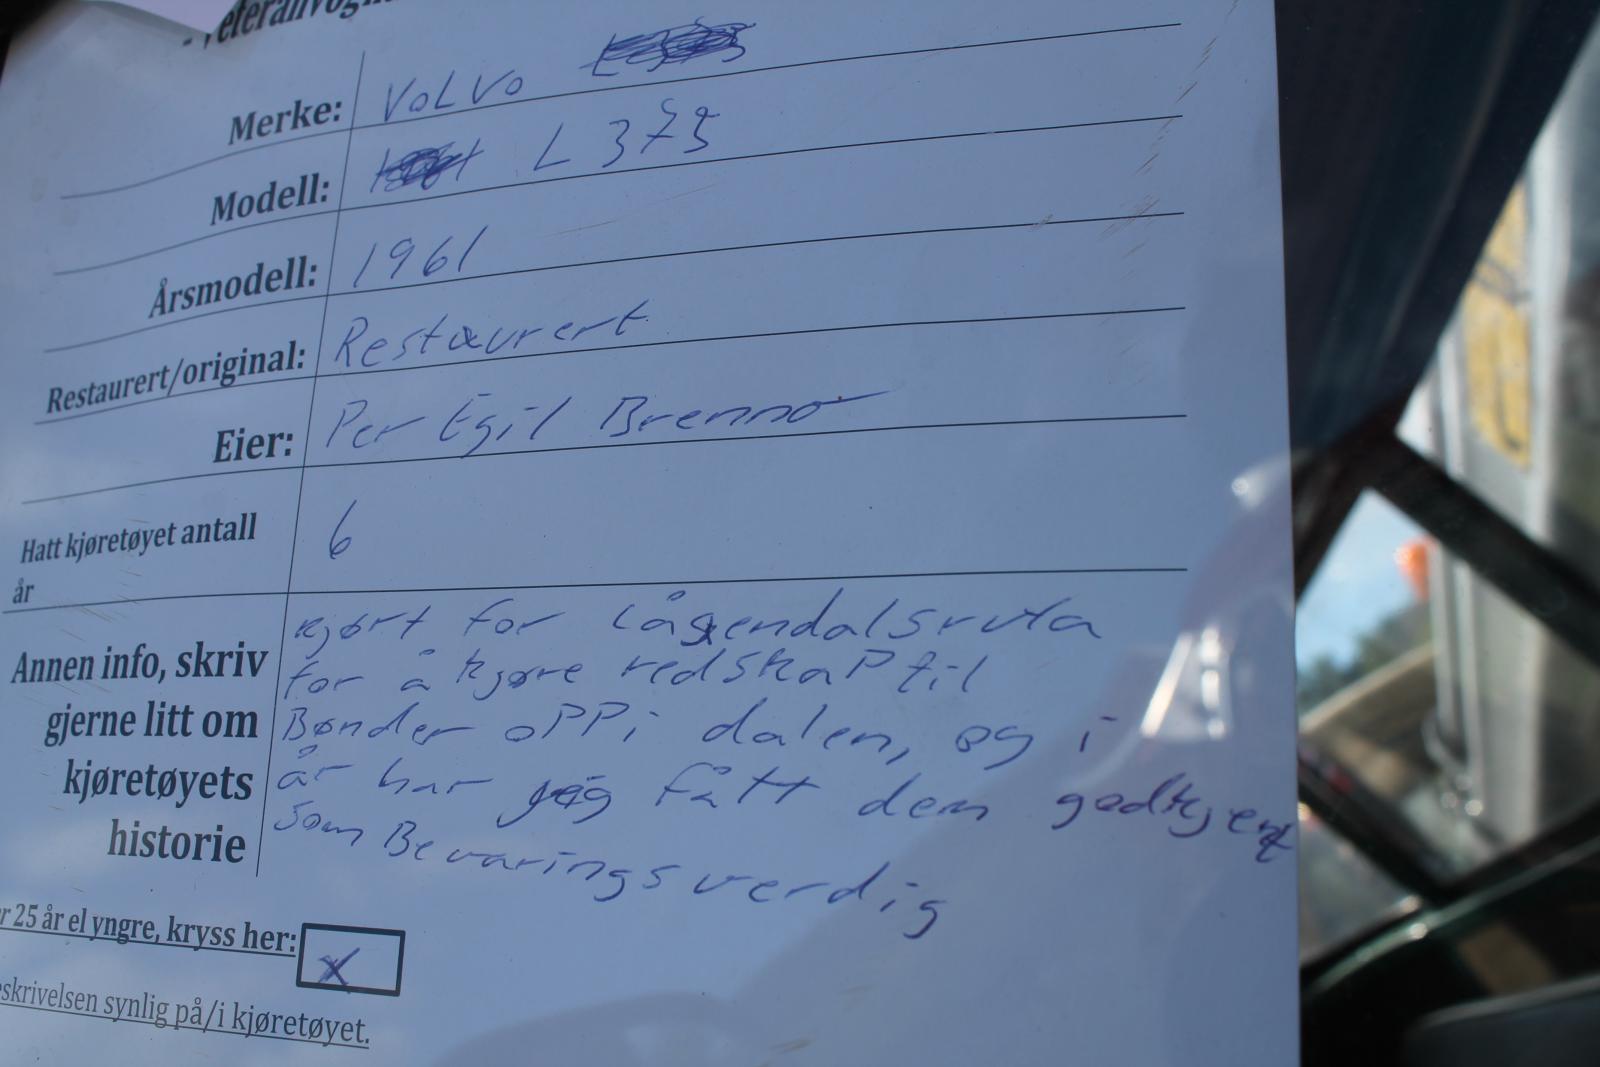 - Veteranvogn
Merke: VOLVO
Modell: L 375
Årsmodell: 1961
Restaurert/original: Restaurert
Eier: Per Egil Brenno
Hatt kjøretøyet antall 6
år
Annen info, skriv
gjerne litt om
kjøretøyets
historie
kjørt for Lågendalsruta
for å kjøre redskap til
Bønder oppi dalen, og i
år har jeg fått dem godkjent
som Bevaringsverdig
r 25 år el yngre, kryss her: X
eskrivelsen synlig på/i kjøretøyet.